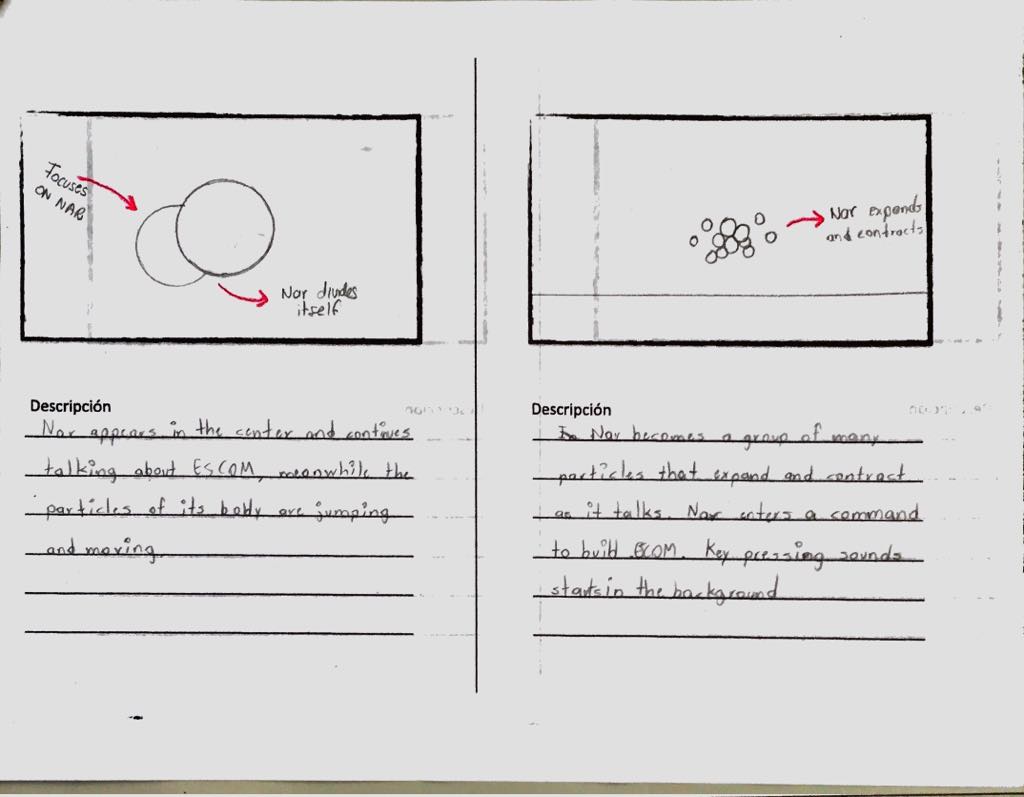 Focuses
ON NAR
Nar divides
itself
Descripción
Nar appears in the center and continues
talking about ESCOM, meanwhile the
particles of its body are jumping
and moving
Nar expands
and contracts
Descripción
Nar becomes a group of many
particles that expand and contract
as it talks. Nar enters a command
to build ECOM. Key pressing sounds
starts in the background